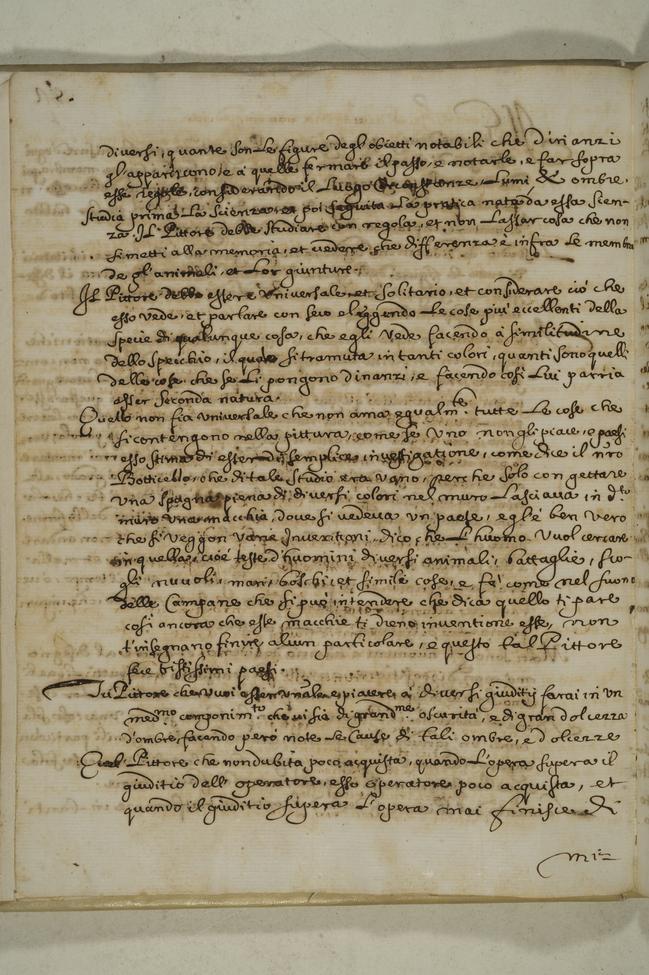 diversi, quante son Le figure degl'obietti notabili che d'inanzi
gl'appariscano, e a quelle fermare il passo, e notarle, e far sopra
esse regole, considerando il Luogo Le circonstanze, Lumi et ombre,
studia prima La scienza, e poi seguita La pratica nata da essa scien-
za. Il Pittore debbe studiare con regola, et non Lassar cosa che non
si metti alla memoria, et vedere che differenza è infra Le membra
de gl'animali, et Lor giunture.
Il Pittore debbe essere Universale, et solitario, et considerare ciò che
esso vede, et parlare con seco eleggendo Le cose più eccellenti della
specie di qualunque cosa, che egli vede facendo a similitudine
dello specchio, il quale si tramuta in tanti colori, quanti sono quelli
delle cose, che se Li pongono dinanzi, e facendo così Lui parria
esser seconda natura.
Quello non fia universale che non ama equalm.te tutte Le cose che
si contengono nella pittura, come se Uno non gli piace, e paesi
esso stima di esser di semplice investigatione, come dice il n'ro
Botticello, che di tale studio era vano, perche solo con gettare
una spugna piena di diversi colori nel muro Lasciava in d.to
muro una macchia, dove si vedeva un paese, egl'è ben vero
che si veggon varie Inventioni, dico che L'huomo vuol cercare
in quella, cioè teste d'huomini diversi animali, battaglie, sco-
gli, nuvoli, mari, boschi et simile cose, e fa' come nel suono
delle Campane che si può intendere che dica quello ti pare
così ancora che esse macchie ti dieno inventione esse, non
t'insegnano finire alcun particolare, e questo tal Pittore
fece tristissimi paesi.
Tu Pittore che vuoi esser un'ale, e piacere, a' diversi giuditij farai in un
med.mo componim.to che vi sia di grand.me oscurità, e di gran dolcezza
d'ombre, facendo però note Le Cause di tali ombre, e dolcezze
Quel Pittore che non dubita poco acquista, quando L'opera supera il
giuditio dell'operatore, esso operatore poco acquista, et
quando il giuditio supera L'opera mai finisce di